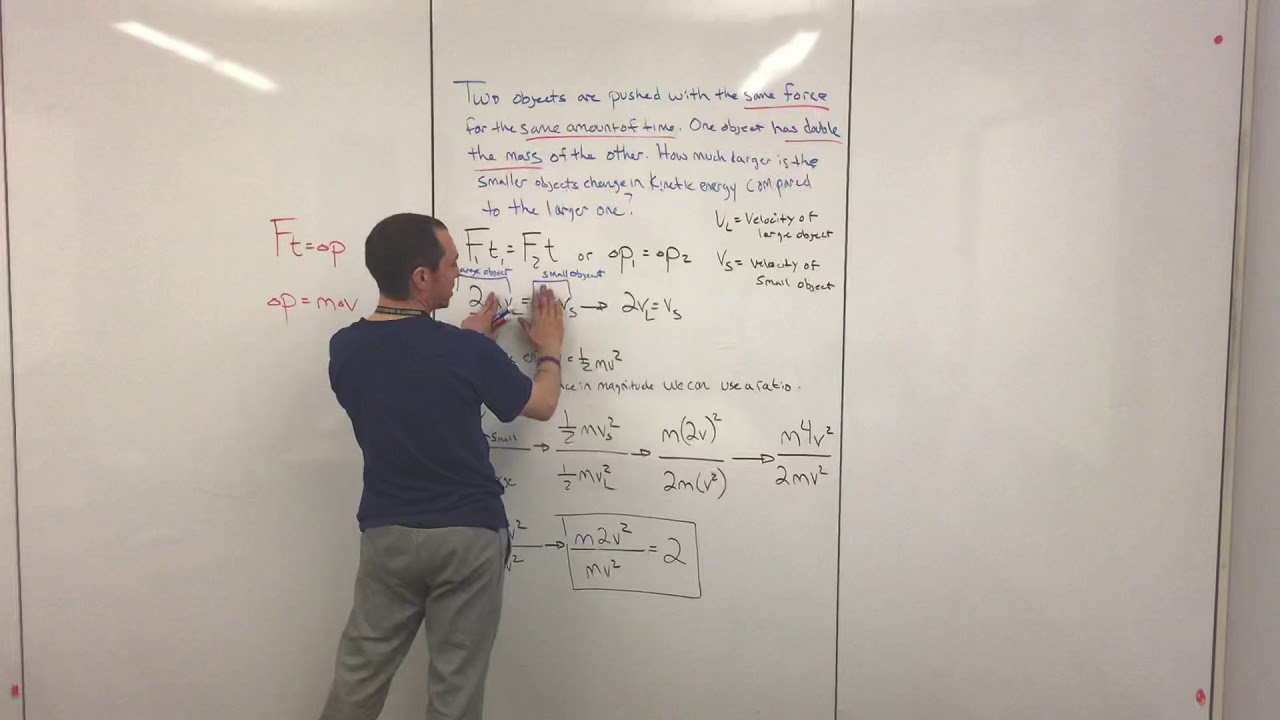 Two objects are pushed with the same force
for the same amount of time. One object has double
the mass of the other. How much larger is the
smaller objects change in kinetic energy compared
to the larger one?
Ft=Δp
Δp=mΔv
F₁t₁=F₂t or Δp₁=Δp₂
V_L=Velocity of
large object
V_S=velocity of
small object
object
small object
2 v_L = v_S → 2v_L=v_S
= ½mv²
in magnitude we can use a ratio.
small → ½mv_S² / ½mv_L² → m(2v)² / 2m(v²) → m4v² / 2mv²
v² / v² → m2v² / mv² = 2